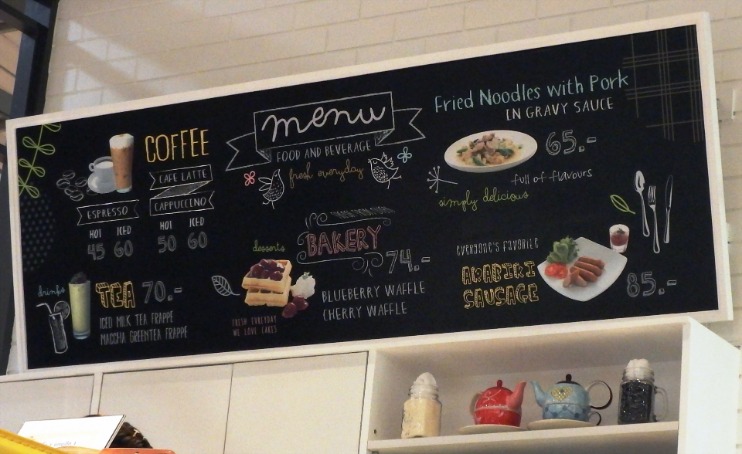 COFFEE
CAFE LATTE
ESPRESSO
CAPPUCCINO
HOT ICED
45 60
HOT ICED
50 60
drinks
TEA 70.-
ICED MILK TEA FRAPPE
MACCHA GREENTEA FRAPPE
menu
FOOD AND BEVERAGE
fresh everyday
desserts
BAKERY
74.-
BLUEBERRY WAFFLE
CHERRY WAFFLE
FRESH EVERYDAY
WE LOVE CAKES
Fried Noodles with Pork
IN GRAVY SAUCE
65.-
full of flavours
simply delicious
everyone's favorite
ARABIKI
SAUSAGE
85.-